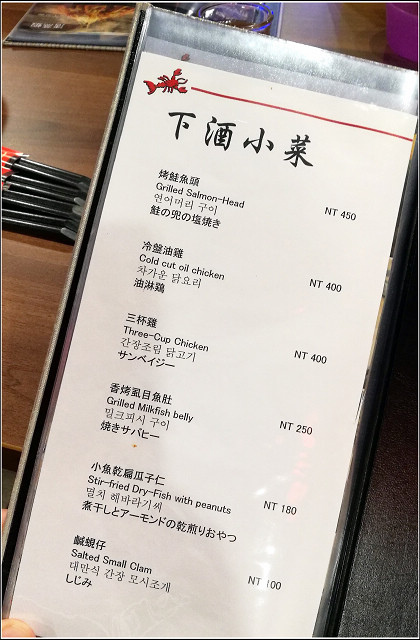 下酒小菜
烤鮭魚頭
Grilled Salmon-Head
연어머리 구이
鮭の兜の塩焼き
NT 450
冷盤油雞
Cold cut oil chicken
차가운 닭요리
油淋鶏
NT 400
三杯雞
Three-Cup Chicken
간장조림 닭고기
サンベイジー
NT 400
香烤虱目魚肚
Grilled Milkfish belly
밀크피시 구이
焼きサバヒー
NT 250
小魚乾扁瓜子仁
Stir-fried Dry-Fish with peanuts
멸치 해바라기씨
煮干しとアーモンドの乾煎りおやつ
NT 180
鹹蜆仔
Salted Small Clam
대만식 간장 모시조개
しじみ
NT 100